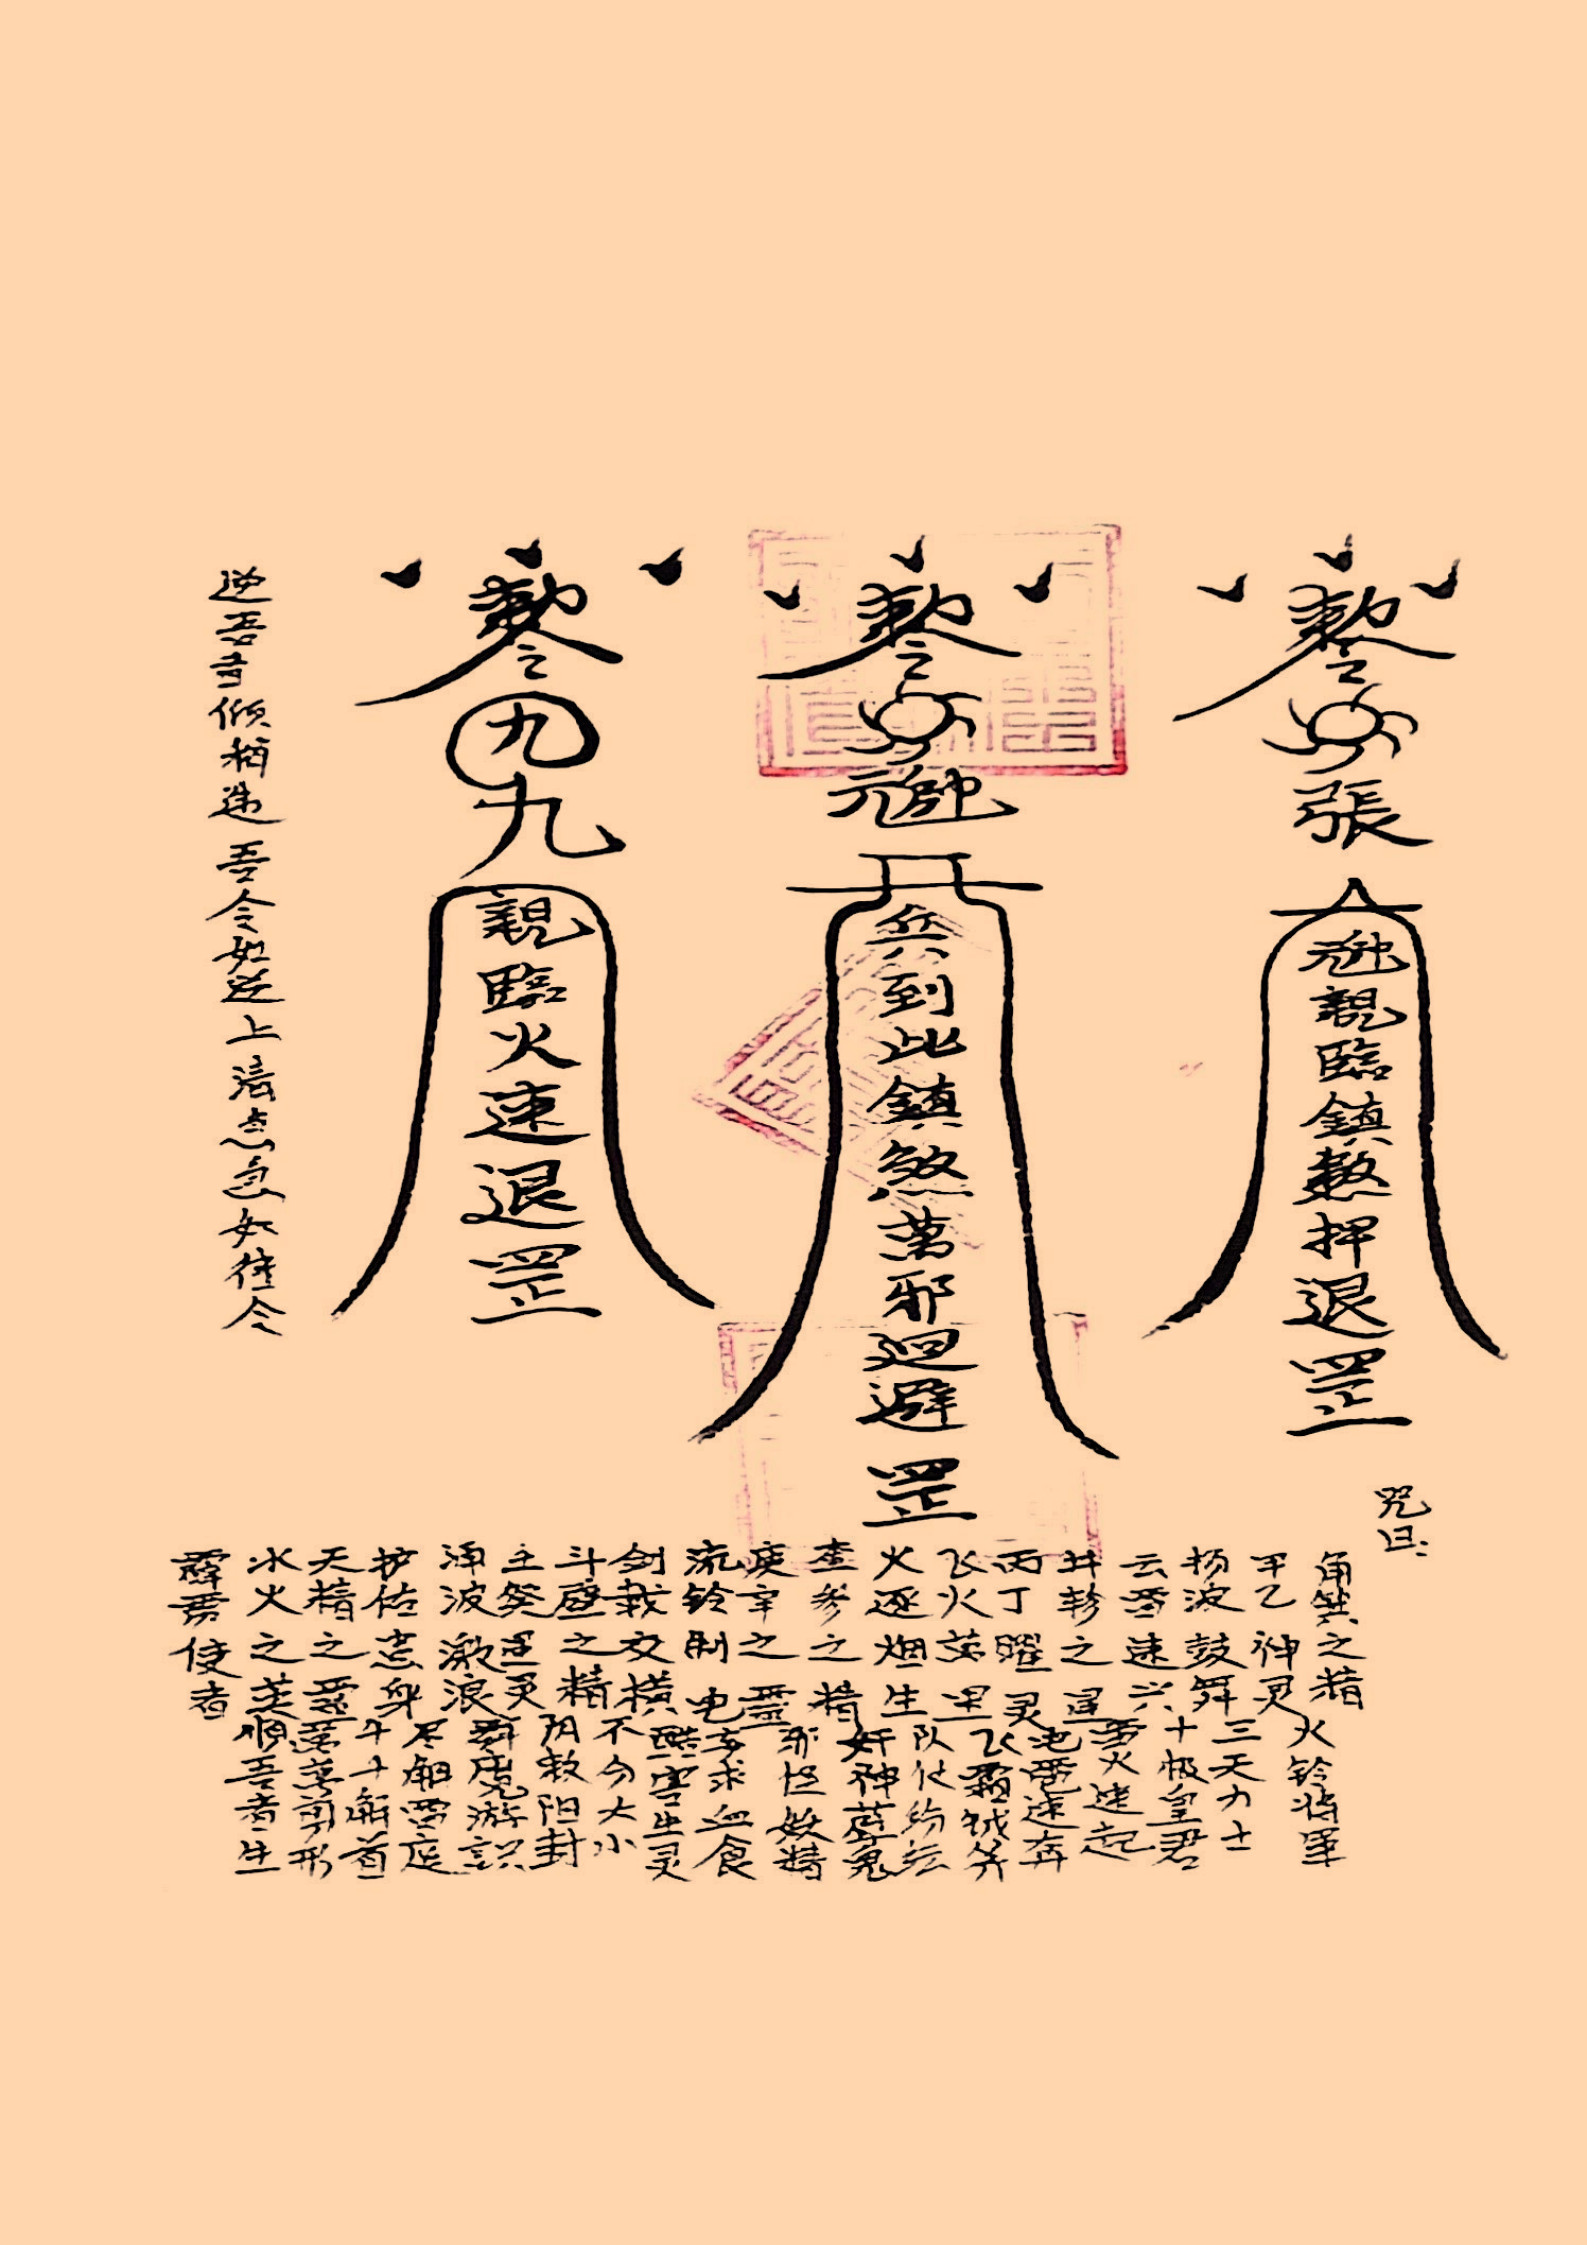 敕令
張
魒親臨鎮煞押退罡
敕令
魒
兵到此鎮煞萬邪迴避罡
敕令
九
九
親臨火速退罡
咒曰:
角箕之精
甲乙神灵
扬波鼓舞
云雷速兴
井轸之星
丙丁曜灵
飞火英星
火逐烟生
奎参之精
庚辛之灵
流铃制电
剑戟交横
斗壁之精
壬癸之灵
浮波激浪
护佑吾身
天精之靈
水火之英
霹雳使者
火铃将军
三天力士
十极皇君
雷火速起
电速奔
飞霜
队仗纷纭
奸神孽鬼
邪怪妖精
妄求血食
酷害生灵
不分大小
阴敕阳封
游
尽
斗十解首
万形
順吾者生
逆吾者倾稍违吾令如逆上清急急如律令